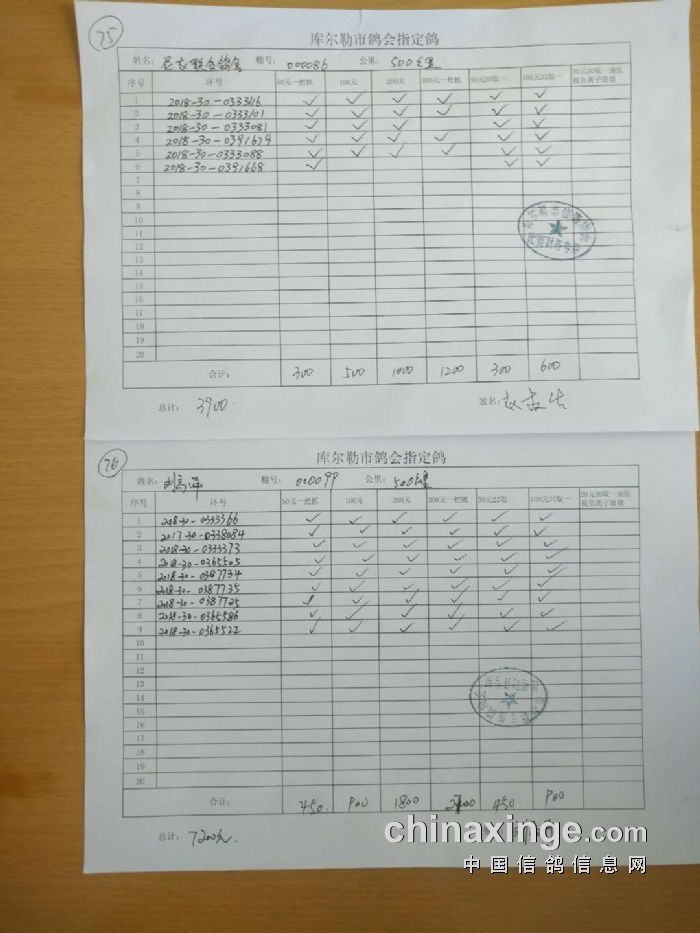 75
库尔勒市鸽会指定鸽
姓名: 联合鸽舍 棚号: 000086 公里: 500公里
序号 环号 50元一把抓 100元 200元 300元一把抓 50元22取一 100元22取一
1 2018-30-0333116 ✓ ✓ ✓ ✓ ✓ ✓
2 2018-30-0333101 ✓ ✓ ✓ ✓ ✓ ✓
3 2018-30-0333081 ✓ ✓ ✓ ✓ ✓
4 2018-30-0391679 ✓ ✓ ✓ ✓ ✓ ✓
5 2018-30-0333088 ✓ ✓ ✓ ✓ ✓ ✓
6 2018-30-0391668 ✓ ✓ ✓
7
8
9
10
11
12
13
14
15
16
17
18
19
20
合计: 300 500 1000 1200 300 600
总计: 3900. 签名:
76
库尔勒市鸽会指定鸽
姓名: 棚号: 000099 公里: 500公里
序号 环号 50元一把抓 100元 200元 300元一把抓 50元22取一 100元22取一
1 2018-30-0333366 ✓ ✓ ✓ ✓ ✓ ✓
2 2017-30-0338084 ✓ ✓ ✓ ✓ ✓ ✓
3 2018-30-0333373 ✓ ✓ ✓ ✓ ✓ ✓
4 2018-30-0365505 ✓ ✓ ✓ ✓ ✓ ✓
5 2018-30-0387734 ✓ ✓ ✓ ✓ ✓ ✓
6 2018-30-0387735 ✓ ✓ ✓ ✓ ✓ ✓
7 2018-30-0387725 ✓ ✓ ✓ ✓ ✓ ✓
8 2018-30-0365586 ✓ ✓ ✓ ✓ ✓ ✓
9 2018-30-0365522 ✓ ✓ ✓ ✓ ✓ ✓
10
11
12
13
14
15
16
17
18
19
20
合计: 450. 900 1800 2700 450 900
总计: 7200元.
chinaxinge.com
中国信鸽信息网